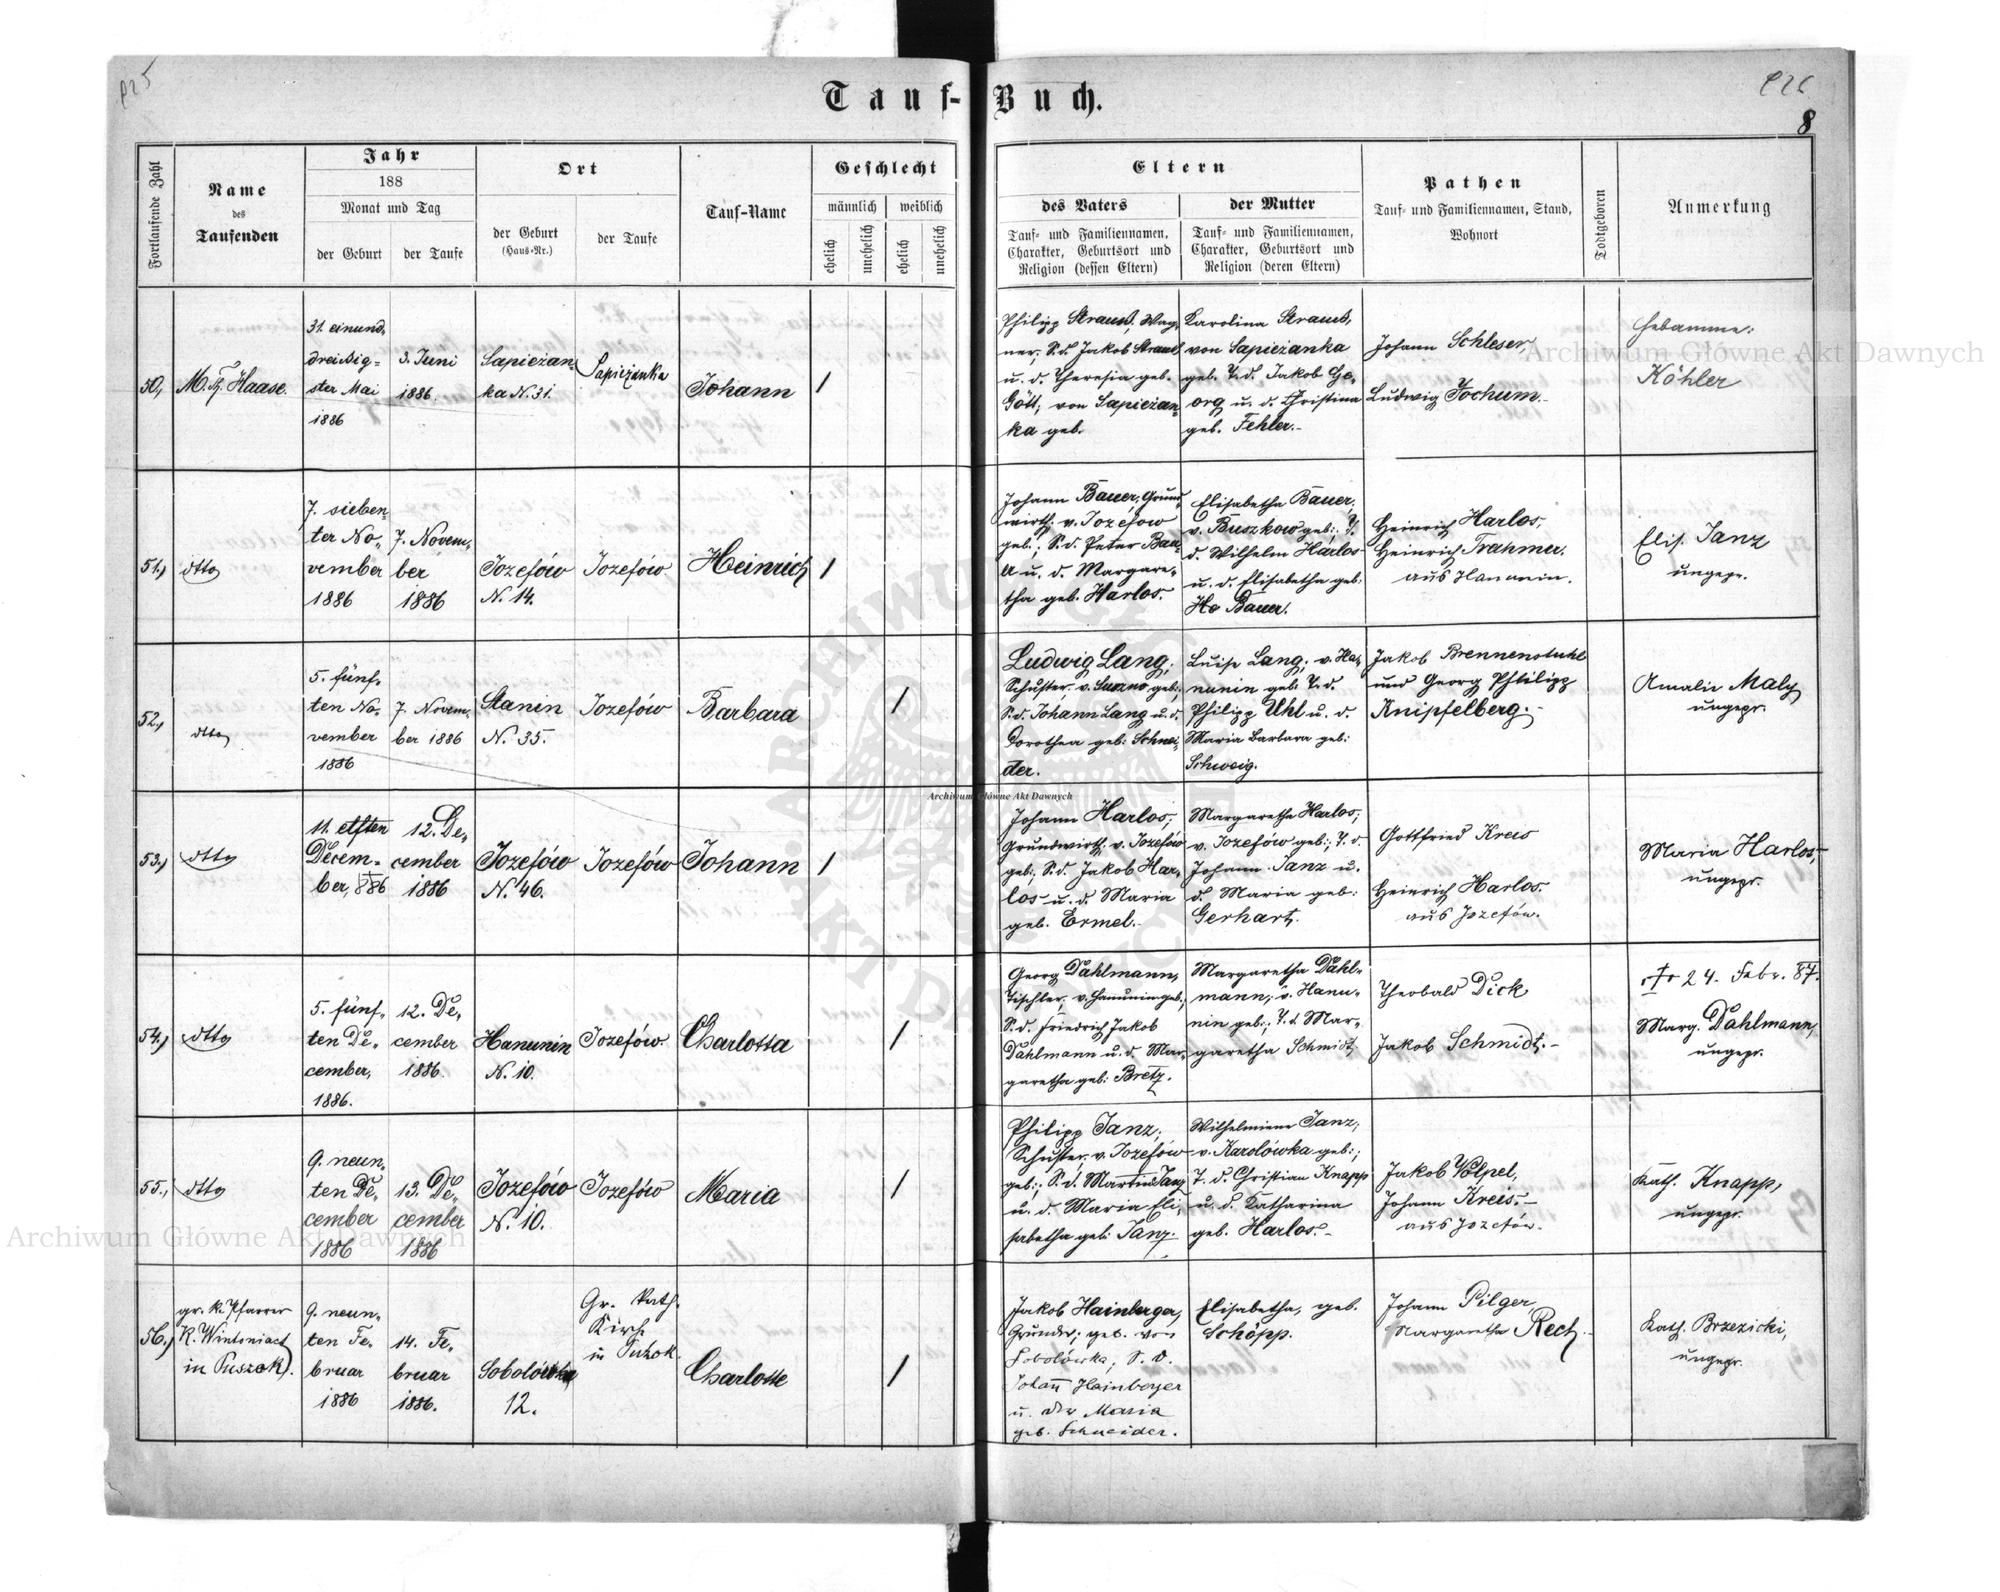 225
226
8
Tauf-Buch.
Fortlaufende Zahl
Name
des
Taufenden
Jahr
188
Monat und Tag
der Geburt
der Taufe
Ort
der Geburt
(Haus-Nr.)
der Taufe
Tauf-Name
Geschlecht
männlich
weiblich
ehelich
unehelich
ehelich
unehelich
Eltern
des Vaters
Tauf- und Familiennamen,
Charakter, Geburtsort und
Religion (dessen Eltern)
der Mutter
Tauf- und Familiennamen,
Charakter, Geburtsort und
Religion (deren Eltern)
Pathen
Tauf- und Familiennamen, Stand,
Wohnort
Todtgeboren
Anmerkung
50,
Haase.
31. einund-
dreißig-
ster Mai
1886
3. Juni
1886.
Sapiezan-
ka N. 31.
Sapiezanka
Johann
/
Philipp Strauß, Wag-
ner, S.d. Jakob Strauß
u. d. Theresia geb.
Gött, von Sapiezan-
ka geb.
Karolina Strauß,
von Sapiezanka
geb. T. d. Jakob Ge-
org u. d. Christina
geb. Fehler.-
Johann Schleser,
Ludwig Jochum.-
Hebamme:
Köhler
51.,
dtto
7. sieben-
ter No-
vember
1886
7. Novem-
ber
1886
Jozefów
N. 14.
Jozefów
Heinrich
/
Johann Bauer, Grund-
wirth, v. Jozefow
geb.; S.d. Peter Bau-
er u. d. Margare-
tha geb. Harlos.
Elisabetha Bauer,
v. Buszkow geb.; T.
d. Wilhelm Harlos
u. d. Elisabetha geb:
Bauer.
Heinrich Harlos,
Heinrich Trahmer.
aus Hanunin.
Elis. Janz
ungepr.
52.,
dtto
5. fünf-
ten No-
vember
1886
7. Novem-
ber 1886
Stanin
N. 35.
Jozefów
Barbara
/
Ludwig Lang,
Schuster v. Suszno geb.;
S.d. Johann Lang u. d.
Dorothea geb: Schnei-
der.
Luise Lang; v. Ha-
nunin geb: T. d.
Philipp Uhl u. d.
Maria Barbara geb:
Schweig.
Jakob Brennenstuhl
und Georg Philipp
Knipfelberg.-
Amalie Maly
ungepr.
53.,
dtto
11. elften
Decem-
ber, 1886
12. De-
cember
1886
Jozefów
N. 46.
Jozefów
Johann
/
Johann Harlos;
Grundwirth, v. Jozefów
geb:, S.d. Jakob Har-
los u. d. Maria
geb. Ermel.-
Margaretha Harlos;
v. Jozefów geb.; T. d.
Johann Janz u.
d. Maria geb:
Gerhart.
Gottfried Kreis
Heinrich Harlos.
aus Jozefów.
Maria Harlos,
ungepr.
54.,
dtto
5. fünf-
ten De-
cember,
1886.
12. De-
cember
1886.
Hanunin
N. 10.
Jozefów
Charlotta
/
Georg Dahlmann,
Tischler, v. Hanunin geb.;
S.d. Friedrich Jakob
Dahlmann u. d. Mar-
garetha geb: Bretz.
Margaretha Dahl-
mann; v. Hanu-
nin geb.; T. d. Mar-
garetha Schmidt.
Theobald Dick
Jakob Schmidt.-
† 24. Febr. 87.
Marg. Dahlmann,
ungepr.
55.,
dtto
9. neun-
ten De-
cember
1886
13. De-
cember
1886
Jozefów
N. 10.
Jozefów
Maria
/
Philipp Janz;
Schuster v. Jozefów
geb.; S.d. Martin Janz
u. d. Maria Eli-
sabetha geb: Janz.
Wilhelmine Janz,
v. Karolówka geb:;
T. d. Christian Knapp
u. d. Katharina
geb. Harlos.-
Jakob Volpel,
Johann Kreis.-
aus Jozefów.
Kath. Knapp,
ungepr.
56.,
gr. k. Pfarrer
in Puszok.
9. neun-
ten Fe-
bruar
1886
14. Fe-
bruar
1886.
Sobolówka
12.
Gr. Kath.
Kirche
in Puszok.
Charlotte
/
Jakob Hainberger,
geb. von
Sobolówka, S. d.
Johann Hainberger
u. der Maria
geb. Schneider.
Elisabetha, geb.
Schöpp.
Johann Pilger,
Margaretha Rech.
Kath. Brzezicki,
ungepr.
Archiwum Główne Akt Dawnych
Archiwum Główne Akt Dawnych
Archiwum Główne Akt Dawnych